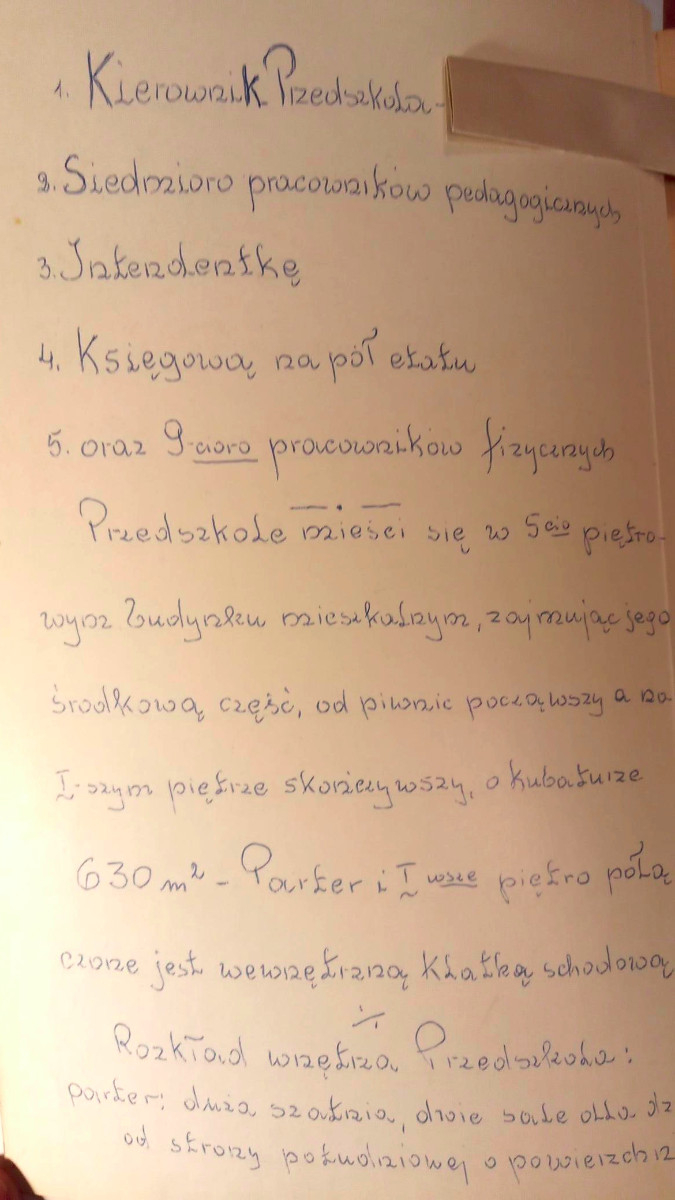 1. Kierownik Przedszkola-
2. Siedmioro pracowników pedagogicznych
3. Intendentkę
4. Księgową na pół etatu
5. oraz 9-cioro pracowników fizycznych
Przedszkole mieści się w 5cio piętro-
wym budynku mieszkalnym, zajmując jego
środkową część, od piwnic począwszy a na
I-szym piętrze skończywszy, o kubaturze
630 m² - Parter i I wsze piętro połą
czone jest wewnętrzną klatką schodową
Rozkład wnętrza Przedszkola:
parter: duża szatnia, dwie sale dla dz
od strony południowej o powierzchn